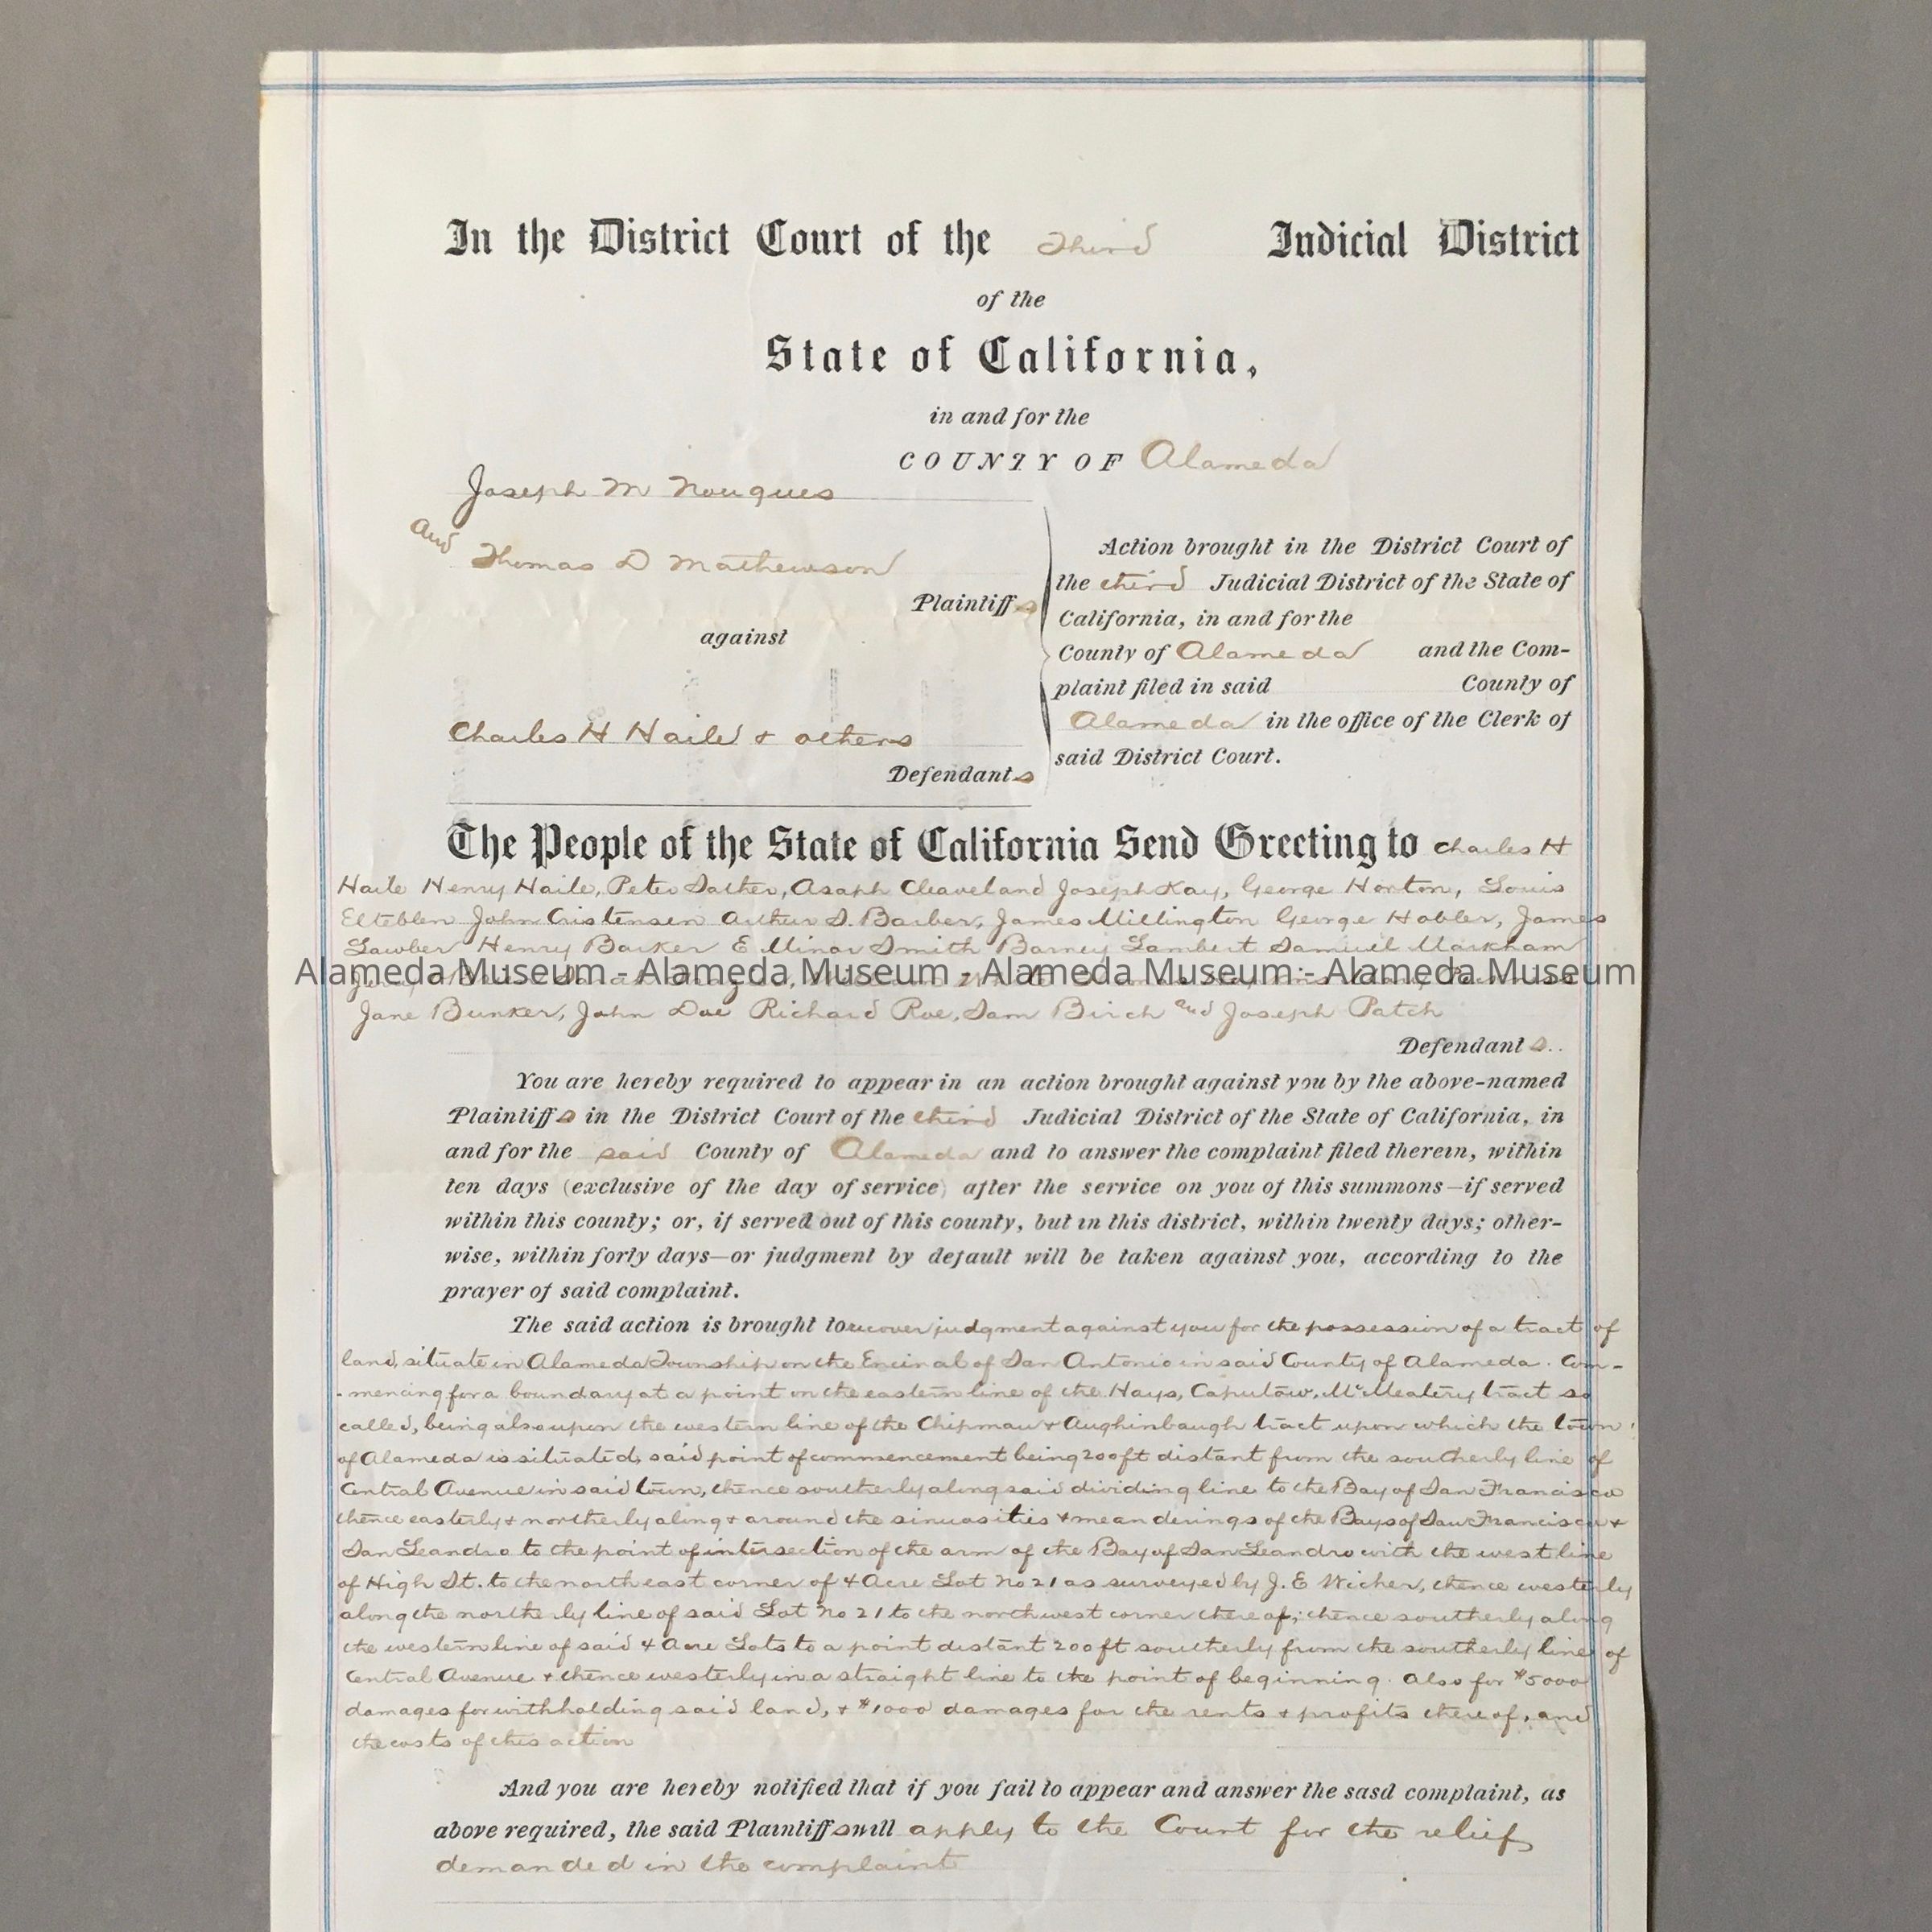 In the District Court of the Third Judicial District
of the
State of California,
in and for the
COUNTY OF Alameda
Joseph M Nougues
and
Thomas D Mathewson
Plaintiffs
against
Charles H Haile & others
Defendants
Action brought in the District Court of
the third Judicial District of the State of
California, in and for the
County of Alameda and the Com-
plaint filed in said County of
Alameda in the office of the Clerk of
said District Court.
The People of the State of California Send Greeting to Charles H
Haile Henry Haile, Peter Sather, Asaph Cleaveland Joseph Kay, George Horton, Louis
John Cristensen Arthur S. Barber, James Millington George Hobler, James
Lawber Henry Barker E Minor Smith Barney Lambert Samuel Markham
Alameda Museum - Alameda Museum - Alameda Museum - Alameda Museum
Jane Bunker, John Doe Richard Roe, Sam Birch and Joseph Patch
Defendants..
You are hereby required to appear in an action brought against you by the above-named
Plaintiffs in the District Court of the third Judicial District of the State of California, in
and for the said County of Alameda and to answer the complaint filed therein, within
ten days (exclusive of the day of service) after the service on you of this summons—if served
within this county; or, if served out of this county, but in this district, within twenty days; other-
wise, within forty days—or judgment by default will be taken against you, according to the
prayer of said complaint.
The said action is brought to recover judgment against you for the possession of a tract of
land, situate in Alameda Township on the Encinal of San Antonio in said County of Alameda. Com-
-mencing for a boundary at a point on the eastern line of the Hays, Caputaw, McMeatery tract so
called, being also upon the western line of the Chipman & Aughinbaugh tract upon which the town
of Alameda is situated, said point of commencement being 200 ft distant from the southerly line of
Central Avenue in said town, thence southerly along said dividing line to the Bay of San Francisco
thence easterly & northerly along & around the sinuosities & meanderings of the Bays of San Francisco &
San Leandro to the point of intersection of the arm of the Bay of San Leandro with the west line
of High St. to the north east corner of 4 Acre Lot No 21 as surveyed by J. E Wicher, thence westerly
along the northerly line of said Lot No 21 to the northwest corner thereof; thence southerly along
the western line of said 4 Acre Lots to a point distant 200 ft southerly from the southerly line of
Central Avenue & thence westerly in a straight line to the point of beginning. Also for $5000
damages for withholding said land, & $1000 damages for the rents & profits thereof, and
the costs of this action
And you are hereby notified that if you fail to appear and answer the sasd complaint, as
above required, the said Plaintiffs will apply to the Court for the relief
demanded in the complaint